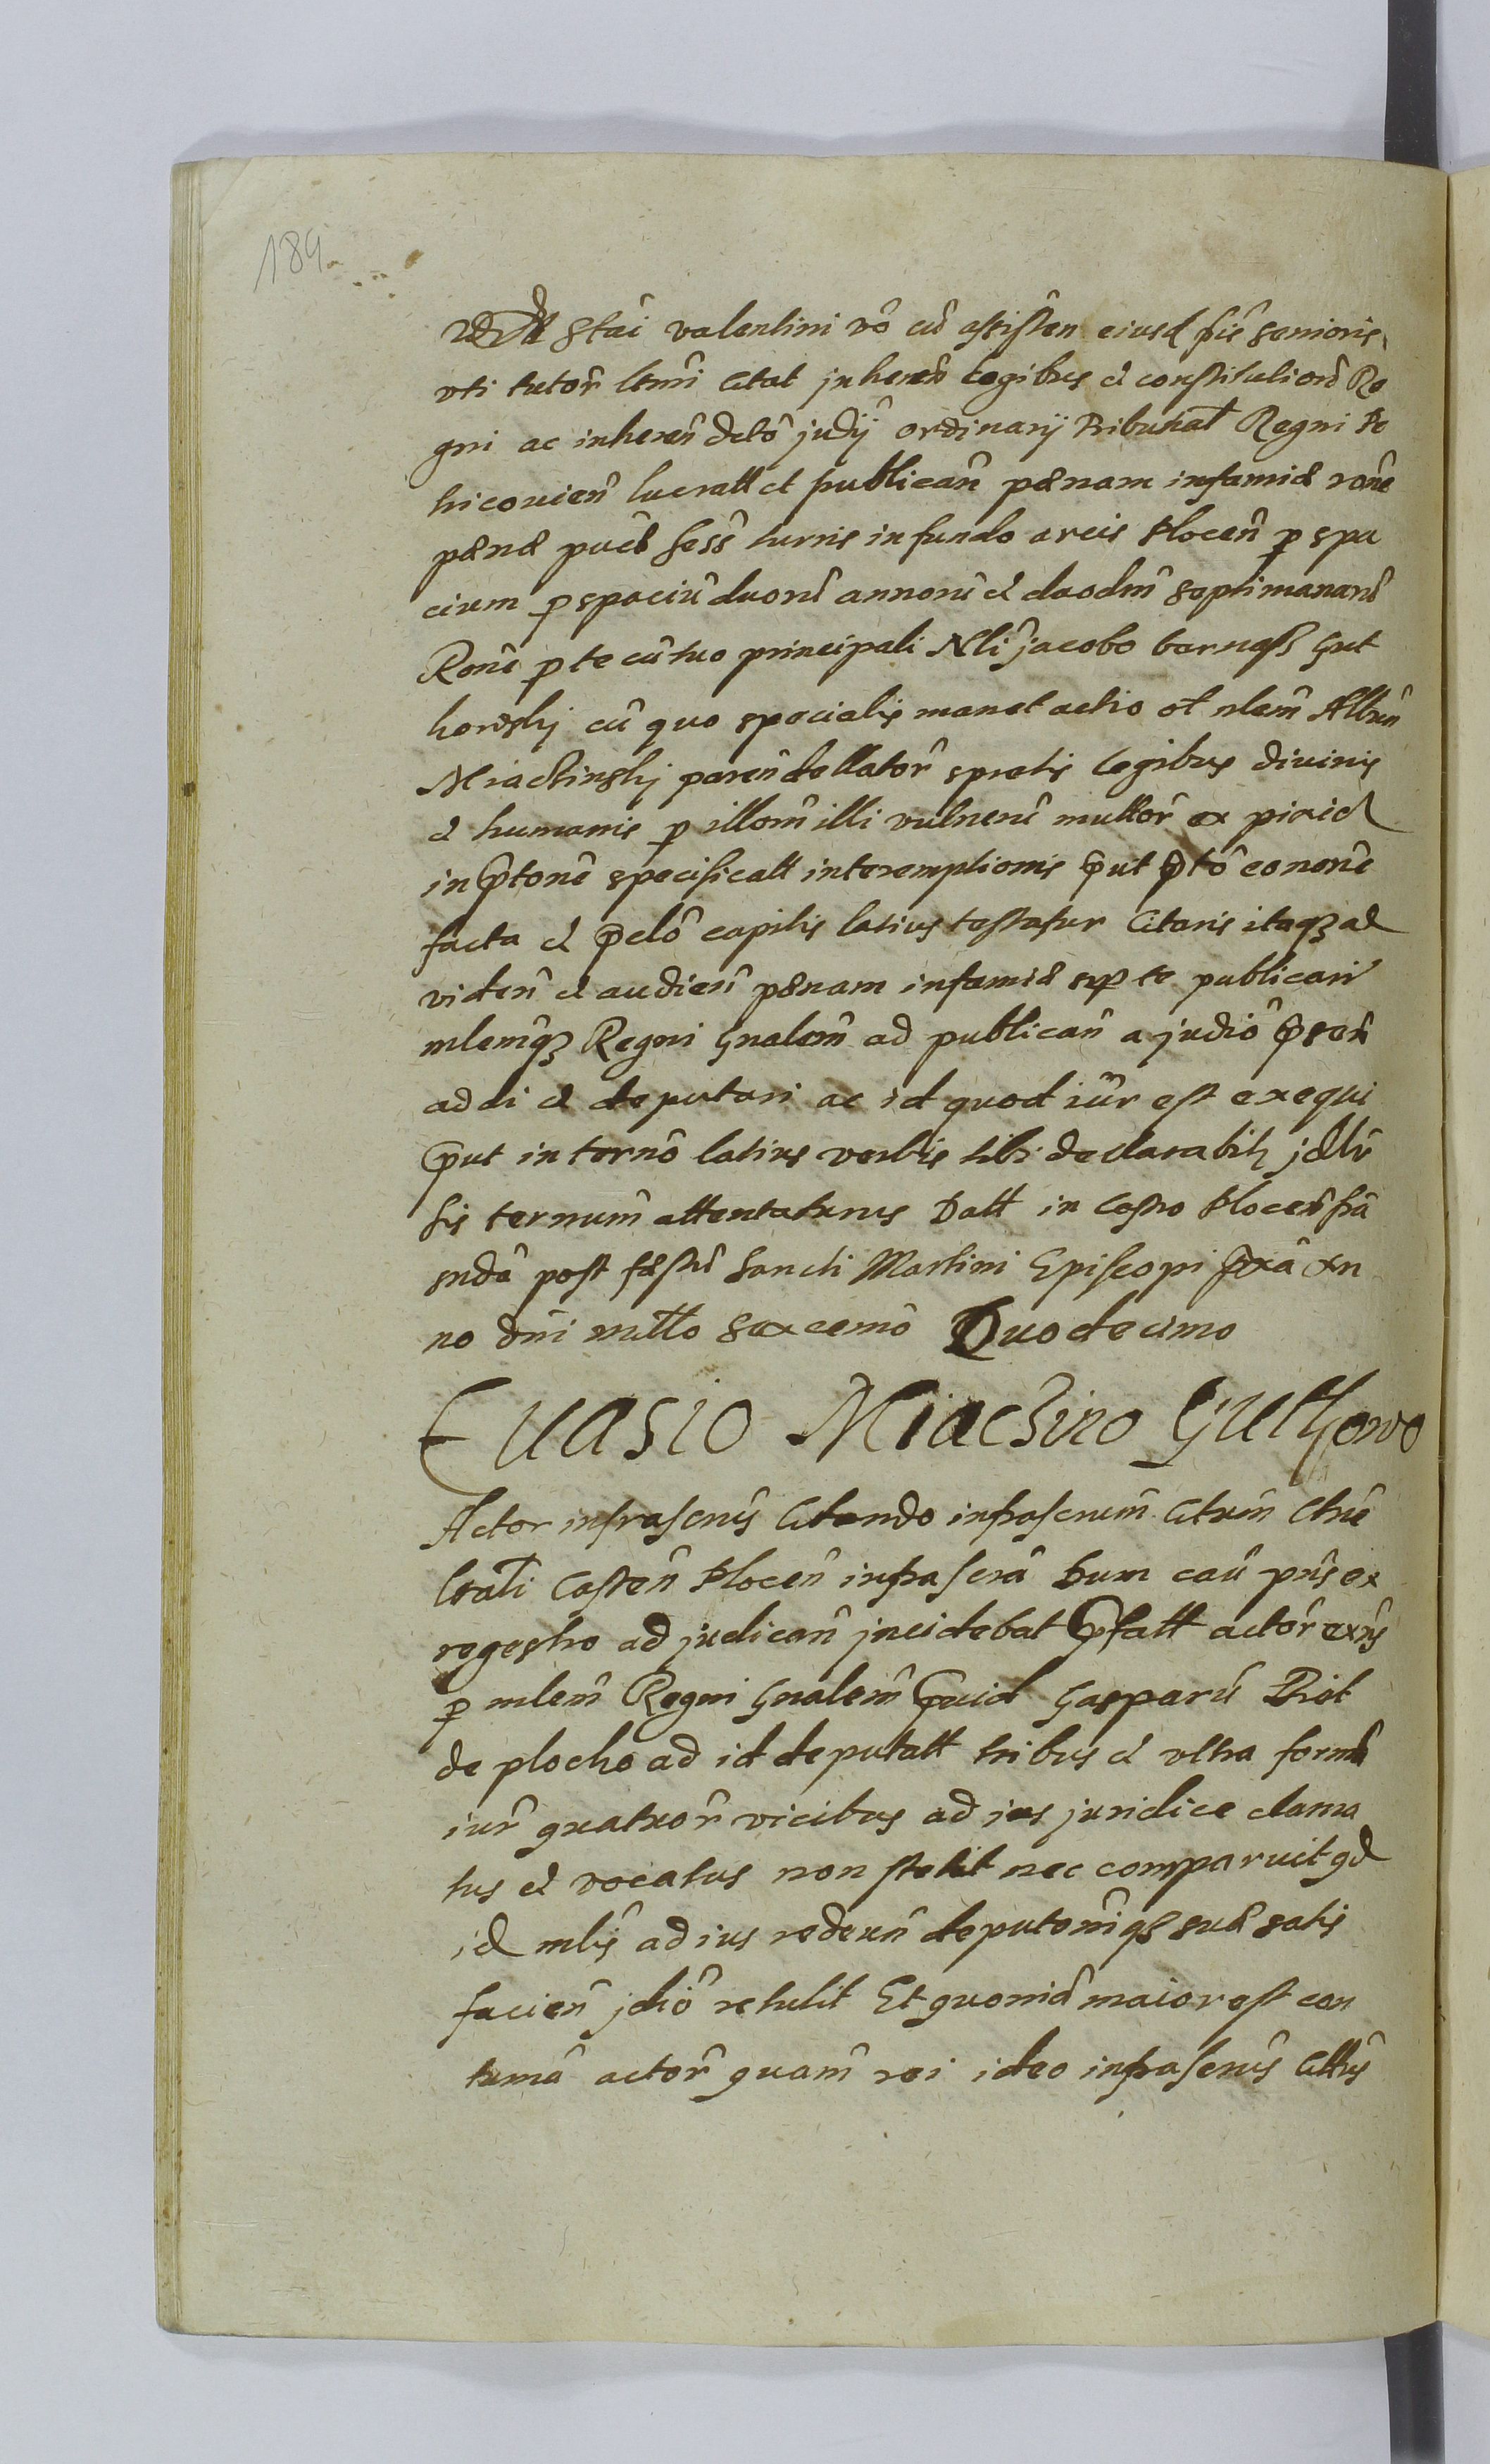 189
Stai valentini vo cu assisten eiusd fris senioris
uti tutor ltmi Citat inheren Legibus et constitution Re
gni ac inheren dcto judij ordinarij Tribunal Regni Pe
tricouien lucratt et publican pænam infamiæ rone
pænæ sess turris in fundo arcis Plocen p spa
cium p spaciu duoru annoru et duodm septimanaru
Rone p te cu tuo principali Nli jacobo Gut
howskj cu quo specialis manet actio ol nlem Albtm
Miachinskj paren dellator spretis Legibus divinis
et humanis p illom illi vulneru multor ex
in ptone specificatt interemptionis put pto eo none
facta et pclo capitis latius testatur Citaris itaqz ad
viden et audien pænam infamiæ sup te publicari
mlemqz Regni Gnalem ad publican a judio pson
addi et deputari ac id quod iur est exequi
put in termo latius verbis tibi declarabitz
sis termum attentaturus Datt in Castro Plocen fia
snda post fæstu Sancti Martini Episcopi pxa an
no dni mitto sexcemo Duodecimo
Evasio Miachino Guthowo
Actor infrascrus Citando infrascrum Citum
Castren Plocen infrascra Dum cau pns ex
regestro ad judican jncidebat pfatt actor exns
p mlem Regni Gnalem pvid Gasparu Piot
de plocho ad id deputatt tribus et ultra forma
iur quatuor vicibus ad ius juridice clama
tus et vocatus non stetit nec comparuit qd
id mlis ad ius redeun deputoniqz suæ satis
facien jdio retulit Et quonia maior est con
tuma actor quam rei ideo infrascrus Cittus